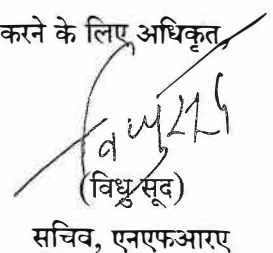 करने के लिए अधिकृत,
(विधु सूद)
सचिव, एनएफआरए